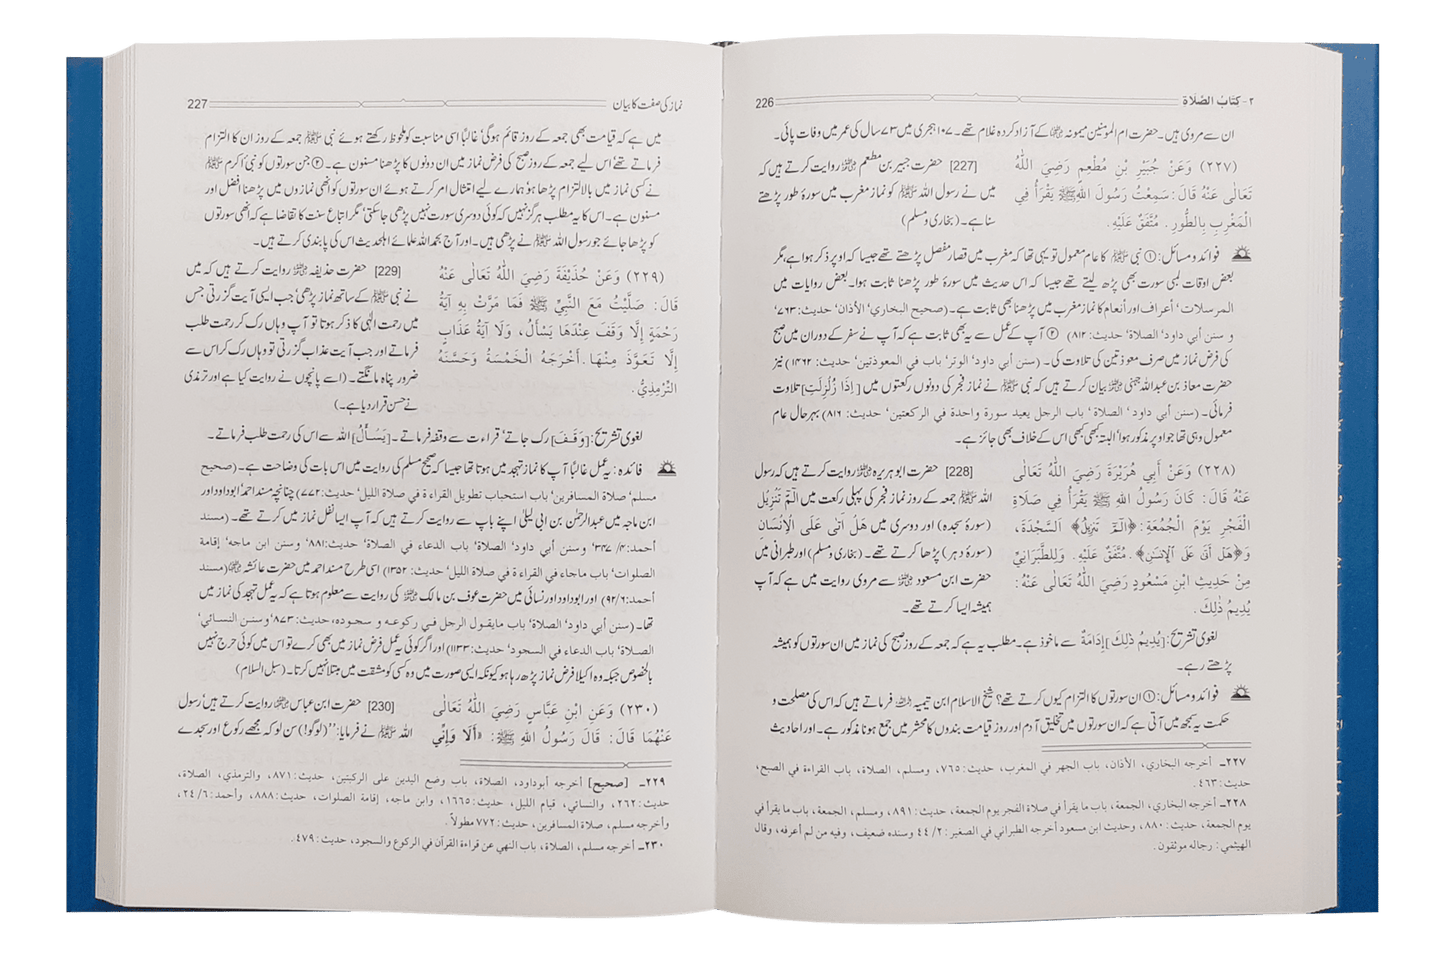 ۲- كتاب الصلاة 226
ان سے مروی ہیں۔ حضرت ام المؤمنین میمونہ ؓ کے آزاد کردہ غلام تھے۔ ۱۰۷ ہجری میں ۷۳ سال کی عمر میں وفات پائی۔
(٢٢٧) وَعَنْ جُبَيْرِ بْنِ مُطْعِمٍ رَضِيَ اللهُ
تَعَالَى عَنْهُ قَالَ: سَمِعْتُ رَسُولَ اللهِ ﷺ يَقْرَأُ فِي
الْمَغْرِبِ بِالطُّورِ. مُتَّفَقٌ عَلَيْهِ.
[227] حضرت جبیر بن مطعم ؓ روایت کرتے ہیں کہ
میں نے رسول اللہ ﷺ کو نماز مغرب میں سورۂ طور پڑھتے
سنا ہے۔ (بخاری و مسلم)
فوائد و مسائل: ① نبی ﷺ کا عام معمول تو یہی تھا کہ مغرب میں قصار مفصل پڑھتے تھے جیسا کہ اوپر ذکر ہوا ہے، مگر
بعض اوقات لمبی سورت بھی پڑھ لیتے تھے جیسا کہ اس حدیث میں سورۂ طور پڑھنا ثابت ہوا۔ بعض روایات میں
المرسلات، أعراف اور أنعام کا نماز مغرب میں پڑھنا بھی ثابت ہے۔ (صحيح البخاري، الأذان، حديث:۷۶۳،
و سنن أبي داود، الصلاة، حديث: ۸۱۲) ② آپ کے عمل سے یہ بھی ثابت ہے کہ آپ نے سفر کے دوران میں صبح
کی فرض نماز میں صرف معوذتین کی تلاوت کی۔ (سنن أبي داود، الوتر، باب في المعوذتين، حديث: ۱۴۶۲) نیز
حضرت معاذ بن عبداللہ جہنی ؓ بیان کرتے ہیں کہ نبی ﷺ نے نماز فجر کی دونوں رکعتوں میں [إِذَا زُلْزِلَتِ] تلاوت
فرمائی۔ (سنن أبي داود، الصلاة، باب الرجل يعيد سورة واحدة في الركعتين، حديث: ۸۱۶) بہرحال عام
معمول وہی تھا جو اوپر مذکور ہوا، البتہ کبھی کبھی اس کے خلاف بھی جائز ہے۔
(٢٢٨) وَعَنْ أَبِي هُرَيْرَةَ رَضِيَ اللهُ تَعَالَى
عَنْهُ قَالَ: كَانَ رَسُولُ اللهِ ﷺ يَقْرَأُ فِي صَلَاةِ
الْفَجْرِ يَوْمَ الْجُمُعَةِ: ﴿الٓمٓ تَنزِيلُ﴾ اَلسَّجْدَةَ،
وَ﴿هَلْ أَتَىٰ عَلَى ٱلْإِنسَٰنِ﴾. مُتَّفَقٌ عَلَيْهِ. وَلِلطَّبَرَانِيِّ
مِنْ حَدِيثِ ابْنِ مَسْعُودٍ رَضِيَ اللهُ تَعَالَى عَنْهُ:
يُدِيمُ ذٰلِكَ.
[228] حضرت ابوہریرہ ؓ روایت کرتے ہیں کہ رسول
اللہ ﷺ جمعہ کے روز نماز فجر کی پہلی رکعت میں الٓمٓ تَنْزِیْلُ
(سورۂ سجدہ) اور دوسری میں هَلْ أَتَى عَلَى الْإِنْسَانِ
(سورۂ دہر) پڑھا کرتے تھے۔ (بخاری و مسلم) اور طبرانی میں
حضرت ابن مسعود ؓ سے مروی روایت میں ہے کہ آپ
ہمیشہ ایسا کرتے تھے۔
لغوی تشریح: [يُدِيمُ ذٰلِكَ] إِدَامَةٌ سے ماخوذ ہے۔ مطلب یہ ہے کہ جمعہ کے روز صبح کی نماز میں ان سورتوں کو ہمیشہ
پڑھتے رہے۔
فوائد و مسائل: ① ان سورتوں کا التزام کیوں کرتے تھے؟ شیخ الاسلام ابن تیمیہ ؒ فرماتے ہیں کہ اس کی مصلحت و
حکمت یہ سمجھ میں آتی ہے کہ ان سورتوں میں تخلیق آدم اور روز قیامت بندوں کا محشر میں جمع ہونا مذکور ہے۔ اور احادیث
٢٢٧ـ أخرجه البخاري، الأذان، باب الجهر في المغرب، حديث: ٧٦٥، ومسلم، الصلاة، باب القراءة في الصبح،
حديث: ٤٦٣.
٢٢٨ـ أخرجه البخاري، الجمعة، باب ما يقرأ في صلاة الفجر يوم الجمعة، حديث: ٨٩١، ومسلم، الجمعة، باب ما يقرأ في
يوم الجمعة، حديث: ٨٨٠، وحديث ابن مسعود أخرجه الطبراني في الصغير: ٢/ ٤٤ وسنده ضعيف، وفيه من لم أعرفه، وقال
الهيثمي: رجاله موثقون.
نماز کی صفت کا بیان 227
میں ہے کہ قیامت بھی جمعہ کے روز قائم ہوگی، غالباً اسی مناسبت کو ملحوظ رکھتے ہوئے نبی ﷺ جمعہ کے روز ان کا التزام
فرماتے تھے، اس لیے جمعہ کے روز صبح کی فرض نماز میں ان دونوں کا پڑھنا مسنون ہے۔ ② جن سورتوں کو نبی اکرم ﷺ
نے کسی نماز میں بالالتزام پڑھا ہو، ہمارے لیے امتثال امر کرتے ہوئے ان سورتوں کو انھی نمازوں میں پڑھنا افضل اور
مسنون ہے۔ اس کا یہ مطلب ہرگز نہیں کہ کوئی دوسری سورت نہیں پڑھی جاسکتی، مگر اتباع سنت کا تقاضا ہے کہ انھی سورتوں
کو پڑھا جائے جو رسول اللہ ﷺ نے پڑھی ہیں۔ اور آج بحمداللہ علمائے اہلحدیث اس کی پابندی کرتے ہیں۔
(٢٢٩) وَعَنْ حُذَيْفَةَ رَضِيَ اللهُ تَعَالَى عَنْهُ
قَالَ: صَلَّيْتُ مَعَ النَّبِيِّ ﷺ فَمَا مَرَّتْ بِهِ آيَةُ
رَحْمَةٍ إِلَّا وَقَفَ عِنْدَهَا يَسْأَلُ، وَلَا آيَةُ عَذَابٍ
إِلَّا تَعَوَّذَ مِنْهَا. أَخْرَجَهُ الْخَمْسَةُ وَحَسَّنَهُ
التِّرْمِذِيُّ.
[229] حضرت حذیفہ ؓ روایت کرتے ہیں کہ میں
نے نبی ﷺ کے ساتھ نماز پڑھی، جب ایسی آیت گزرتی جس
میں رحمت الٰہی کا ذکر ہوتا تو آپ وہاں رک کر رحمت طلب
فرماتے اور جب آیت عذاب گزرتی تو وہاں رک کر اس سے
ضرور پناہ مانگتے۔ (اسے پانچوں نے روایت کیا ہے اور ترمذی
نے حسن قرار دیا ہے۔)
لغوی تشریح: [وَقَفَ] رک جاتے، قراءت سے وقفہ فرماتے۔ [يَسْأَلُ] اللہ سے اس کی رحمت طلب فرماتے۔
فائدہ: یہ عمل غالباً آپ کا نماز تہجد میں ہوتا تھا جیسا کہ صحیح مسلم کی روایت میں اس بات کی وضاحت ہے۔ (صحيح
مسلم، صلاة المسافرين، باب استحباب تطويل القراءة في صلاة الليل، حديث:۷۷۲) چنانچہ مسند احمد، ابوداود اور
ابن ماجہ میں عبدالرحمٰن بن ابی لیلیٰ اپنے باپ سے روایت کرتے ہیں کہ آپ ایسا نفل نماز میں کرتے تھے۔ (مسند
أحمد:۴/ ۳۴۷، وسنن أبي داود، الصلاة، باب الدعاء في الصلاة، حديث:۸۸۱، وسنن ابن ماجه، إقامة
الصلوات، باب ماجاء في القراءة في صلاة الليل، حديث: ۱۳۵۲) اسی طرح مسند احمد میں حضرت عائشہ ؓ (مسند
أحمد:۶/ ۹۲) اور ابوداود اور نسائی میں حضرت عوف بن مالک ؓ کی روایت سے معلوم ہوتا ہے کہ یہ عمل تہجد کی نماز میں
تھا۔ (سنن أبي داود، الصلاة، باب مايقول الرجل في ركوعه و سجوده، حديث:۸۷۳، وسنن النسائي،
الصلاة، باب الدعاء في السجود، حديث: ۱۱۳۳) اور اگر کوئی یہ عمل فرض نماز میں بھی کرے تو اس میں کوئی حرج نہیں
بالخصوص جبکہ وہ اکیلا فرض نماز پڑھ رہا ہو کیونکہ ایسی صورت میں وہ کسی کو مشقت میں مبتلا نہیں کرتا۔ (سبل السلام)
(٢٣٠) وَعَنِ ابْنِ عَبَّاسٍ رَضِيَ اللهُ تَعَالَى
عَنْهُمَا قَالَ: قَالَ رَسُولُ اللهِ ﷺ: «أَلَا وَإِنِّي
[230] حضرت ابن عباس ؓ روایت کرتے ہیں، رسول
اللہ ﷺ نے فرمایا: ’’(لوگو!) سن لو کہ مجھے رکوع اور سجدے
٢٢٩ـ [صحيح] أخرجه أبوداود، الصلاة، باب وضع اليدين على الركبتين، حديث: ٨٧١، والترمذي، الصلاة،
حديث: ٢٦٢، والنسائي، قيام الليل، حديث: ١٦٦٥، وابن ماجه، إقامة الصلوات، حديث: ٨٨٨، وأحمد: ٦/ ٢٤،
وأخرجه مسلم، صلاة المسافرين، حديث: ٧٧٢ مطولاً.
٢٣٠ـ أخرجه مسلم، الصلاة، باب النهي عن قراءة القرآن في الركوع والسجود، حديث: ٤٧٩.